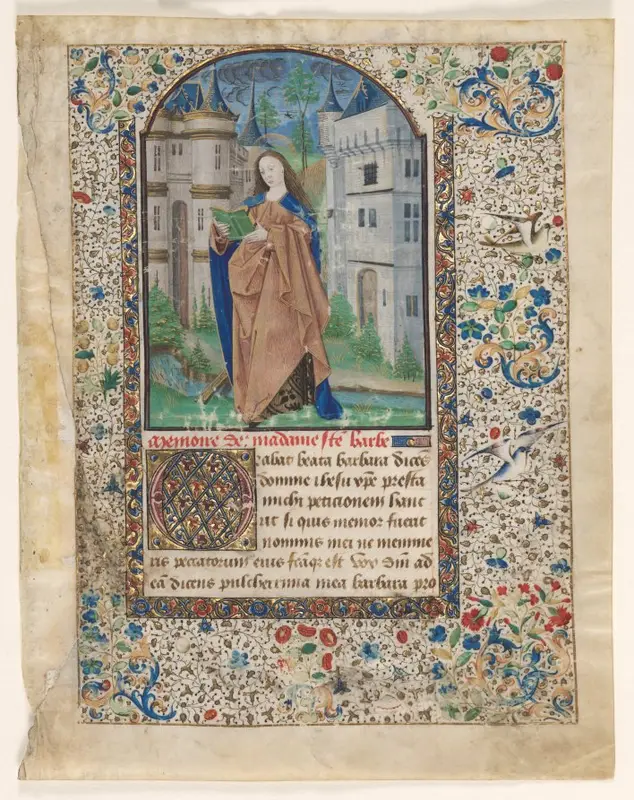 Memoire de madame ste barbe
Orabat beata barbara dices
domine ihesu xpe presta
michi peticionem hanc
ut si quis memor fuerit
nominis mei ne memine
ris peccatorum eius factaque est vox dni ad
ea dicens pulcherrima mea barbara pro